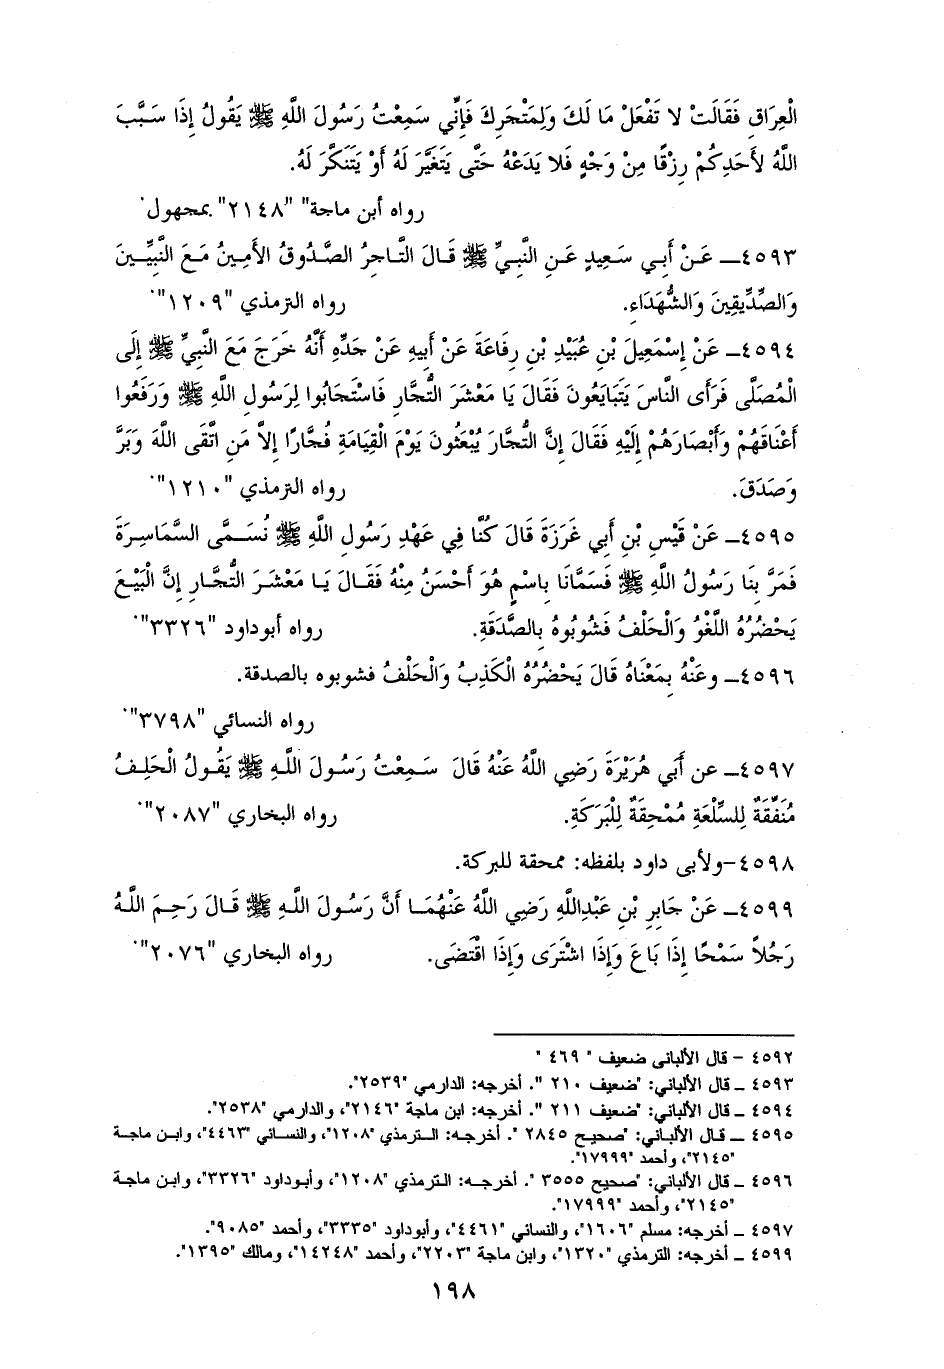 الْعِرَاقِ فَقَالَتْ لا تَفْعَلْ مَا لَكَ وَلِمَتْجَرِكَ فَإِنِّي سَمِعْتُ رَسُولَ اللَّهِ ﷺ يَقُولُ إِذَا سَبَّبَ
اللَّهُ لأَحَدِكُمْ رِزْقًا مِنْ وَجْهٍ فَلا يَدَعْهُ حَتَّى يَتَغَيَّرَ لَهُ أَوْ يَتَنَكَّرَ لَهُ.
رواه أبن ماجة" "٢١٤٨" بمجهول.
٤٥٩٣ــ عَنْ أَبِي سَعِيدٍ عَنِ النَّبِيِّ ﷺ قَالَ التَّاجِرُ الصَّدُوقُ الأَمِينُ مَعَ النَّبِيِّينَ
وَالصِّدِّيقِينَ وَالشُّهَدَاءِ. رواه الترمذي "١٢٠٩".
٤٥٩٤ــ عَنْ إِسْمَعِيلَ بْنِ عُبَيْدِ بْنِ رِفَاعَةَ عَنْ أَبِيهِ عَنْ جَدِّهِ أَنَّهُ خَرَجَ مَعَ النَّبِيِّ ﷺ إِلَى
الْمُصَلَّى فَرَأَى النَّاسَ يَتَبَايَعُونَ فَقَالَ يَا مَعْشَرَ التُّجَّارِ فَاسْتَجَابُوا لِرَسُولِ اللَّهِ ﷺ وَرَفَعُوا
أَعْنَاقَهُمْ وَأَبْصَارَهُمْ إِلَيْهِ فَقَالَ إِنَّ التُّجَّارَ يُبْعَثُونَ يَوْمَ الْقِيَامَةِ فُجَّارًا إِلاَّ مَنِ اتَّقَى اللَّهَ وَبَرَّ
وَصَدَقَ. رواه الترمذي "١٢١٠".
٤٥٩٥ــ عَنْ قَيْسِ بْنِ أَبِي غَرَزَةَ قَالَ كُنَّا فِي عَهْدِ رَسُولِ اللَّهِ ﷺ نُسَمَّى السَّمَاسِرَةَ
فَمَرَّ بِنَا رَسُولُ اللَّهِ ﷺ فَسَمَّانَا بِاسْمٍ هُوَ أَحْسَنُ مِنْهُ فَقَالَ يَا مَعْشَرَ التُّجَّارِ إِنَّ الْبَيْعَ
يَحْضُرُهُ اللَّغْوُ وَالْحَلْفُ فَشُوبُوهُ بِالصَّدَقَةِ. رواه أبوداود "٣٣٢٦".
٤٥٩٦ــ وعَنْهُ بِمَعْنَاهُ قَالَ يَحْضُرُهُ الْكَذِبُ وَالْحَلْفُ فشوبوه بالصدقة.
رواه النسائي "٣٧٩٨".
٤٥٩٧ــ عن أَبِي هُرَيْرَةَ رَضِي اللَّهُ عَنْهُ قَالَ سَمِعْتُ رَسُولَ اللَّهِ ﷺ يَقُولُ الْحَلِفُ
مُنَفِّقَةٌ لِلسِّلْعَةِ مُمْحِقَةٌ لِلْبَرَكَةِ. رواه البخاري "٢٠٨٧".
٤٥٩٨-ولأبى داود بلفظه: ممحقة للبركة.
٤٥٩٩ــ عَنْ جَابِرِ بْنِ عَبْدِاللَّهِ رَضِي اللَّهُ عَنْهُمَا أَنَّ رَسُولَ اللَّهِ ﷺ قَالَ رَحِمَ اللَّهُ
رَجُلاً سَمْحًا إِذَا بَاعَ وَإِذَا اشْتَرَى وَإِذَا اقْتَضَى. رواه البخاري "٢٠٧٦".
٤٥٩٢ - قال الألبانى ضعيف " ٤٦٩ "
٤٥٩٣ ــ قال الألباني: "ضعيف ٢١٠ ". أخرجه: الدارمي "٢٥٣٩".
٤٥٩٤ ــ قال الألباني: "ضعيف ٢١١ ". أخرجه: ابن ماجة "٢١٤٦"، والدارمي "٢٥٣٨".
٤٥٩٥ ــ قال الألباني: "صحيح ٢٨٤٥ ". أخرجه: الترمذي "١٢٠٨"، والنسائي "٤٤٦٣"، وابن ماجة
"٢١٤٥"، وأحمد "١٧٩٩٩".
٤٥٩٦ ــ قال الألباني: "صحيح ٣٥٥٥ ". أخرجه: الترمذي "١٢٠٨"، وأبوداود "٣٣٢٦"، وابن ماجة
"٢١٤٥"، وأحمد "١٧٩٩٩".
٤٥٩٧ ــ أخرجه: مسلم "١٦٠٦"، والنسائي "٤٤٦١"، وأبوداود "٣٣٣٥"، وأحمد "٩٠٨٥".
٤٥٩٩ ــ أخرجه: الترمذي "١٣٢٠"، وابن ماجة "٢٢٠٣"، وأحمد "١٤٢٤٨"، ومالك "١٣٩٥".
١٩٨